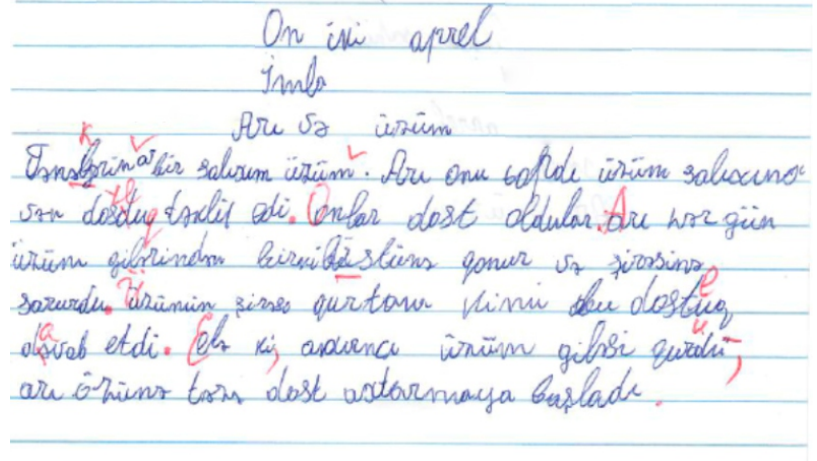 On iki aprel
İmla
Arı və üzüm
bir salxım üzüm. Arı onu tapdı üzüm salxımına
dostuq təklif edi. Onlar dost oldular. Arı hər gün
üzüm gilərindən qonur və şirəsinə
sorurdu. Üzümün şirəsi kimi bu dostuq
davab etdi. Elə ki, axırıncı üzüm giləsi qurdu,
arı özünə təzə dost axtarmaya başladı.